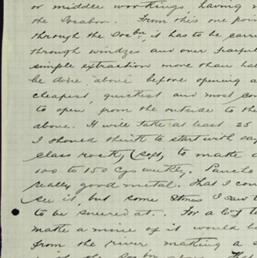 or middle workings, having
the Socabon. From this one poin
through the Socbn it has to be carri
through windzes and over
simple extraction more than hal
be done above before opening a
cheapest, quickest and most con
to open from the outside to the
above. It will take at least 25
I should think to start with say
class rock, (say) to make a
100 to 150 Cgs weekly.
really good metal. That I cou
see it, but some times I saw t
to be sneered at. For a Co'y t
make a mine of it would b
from the river, making a s